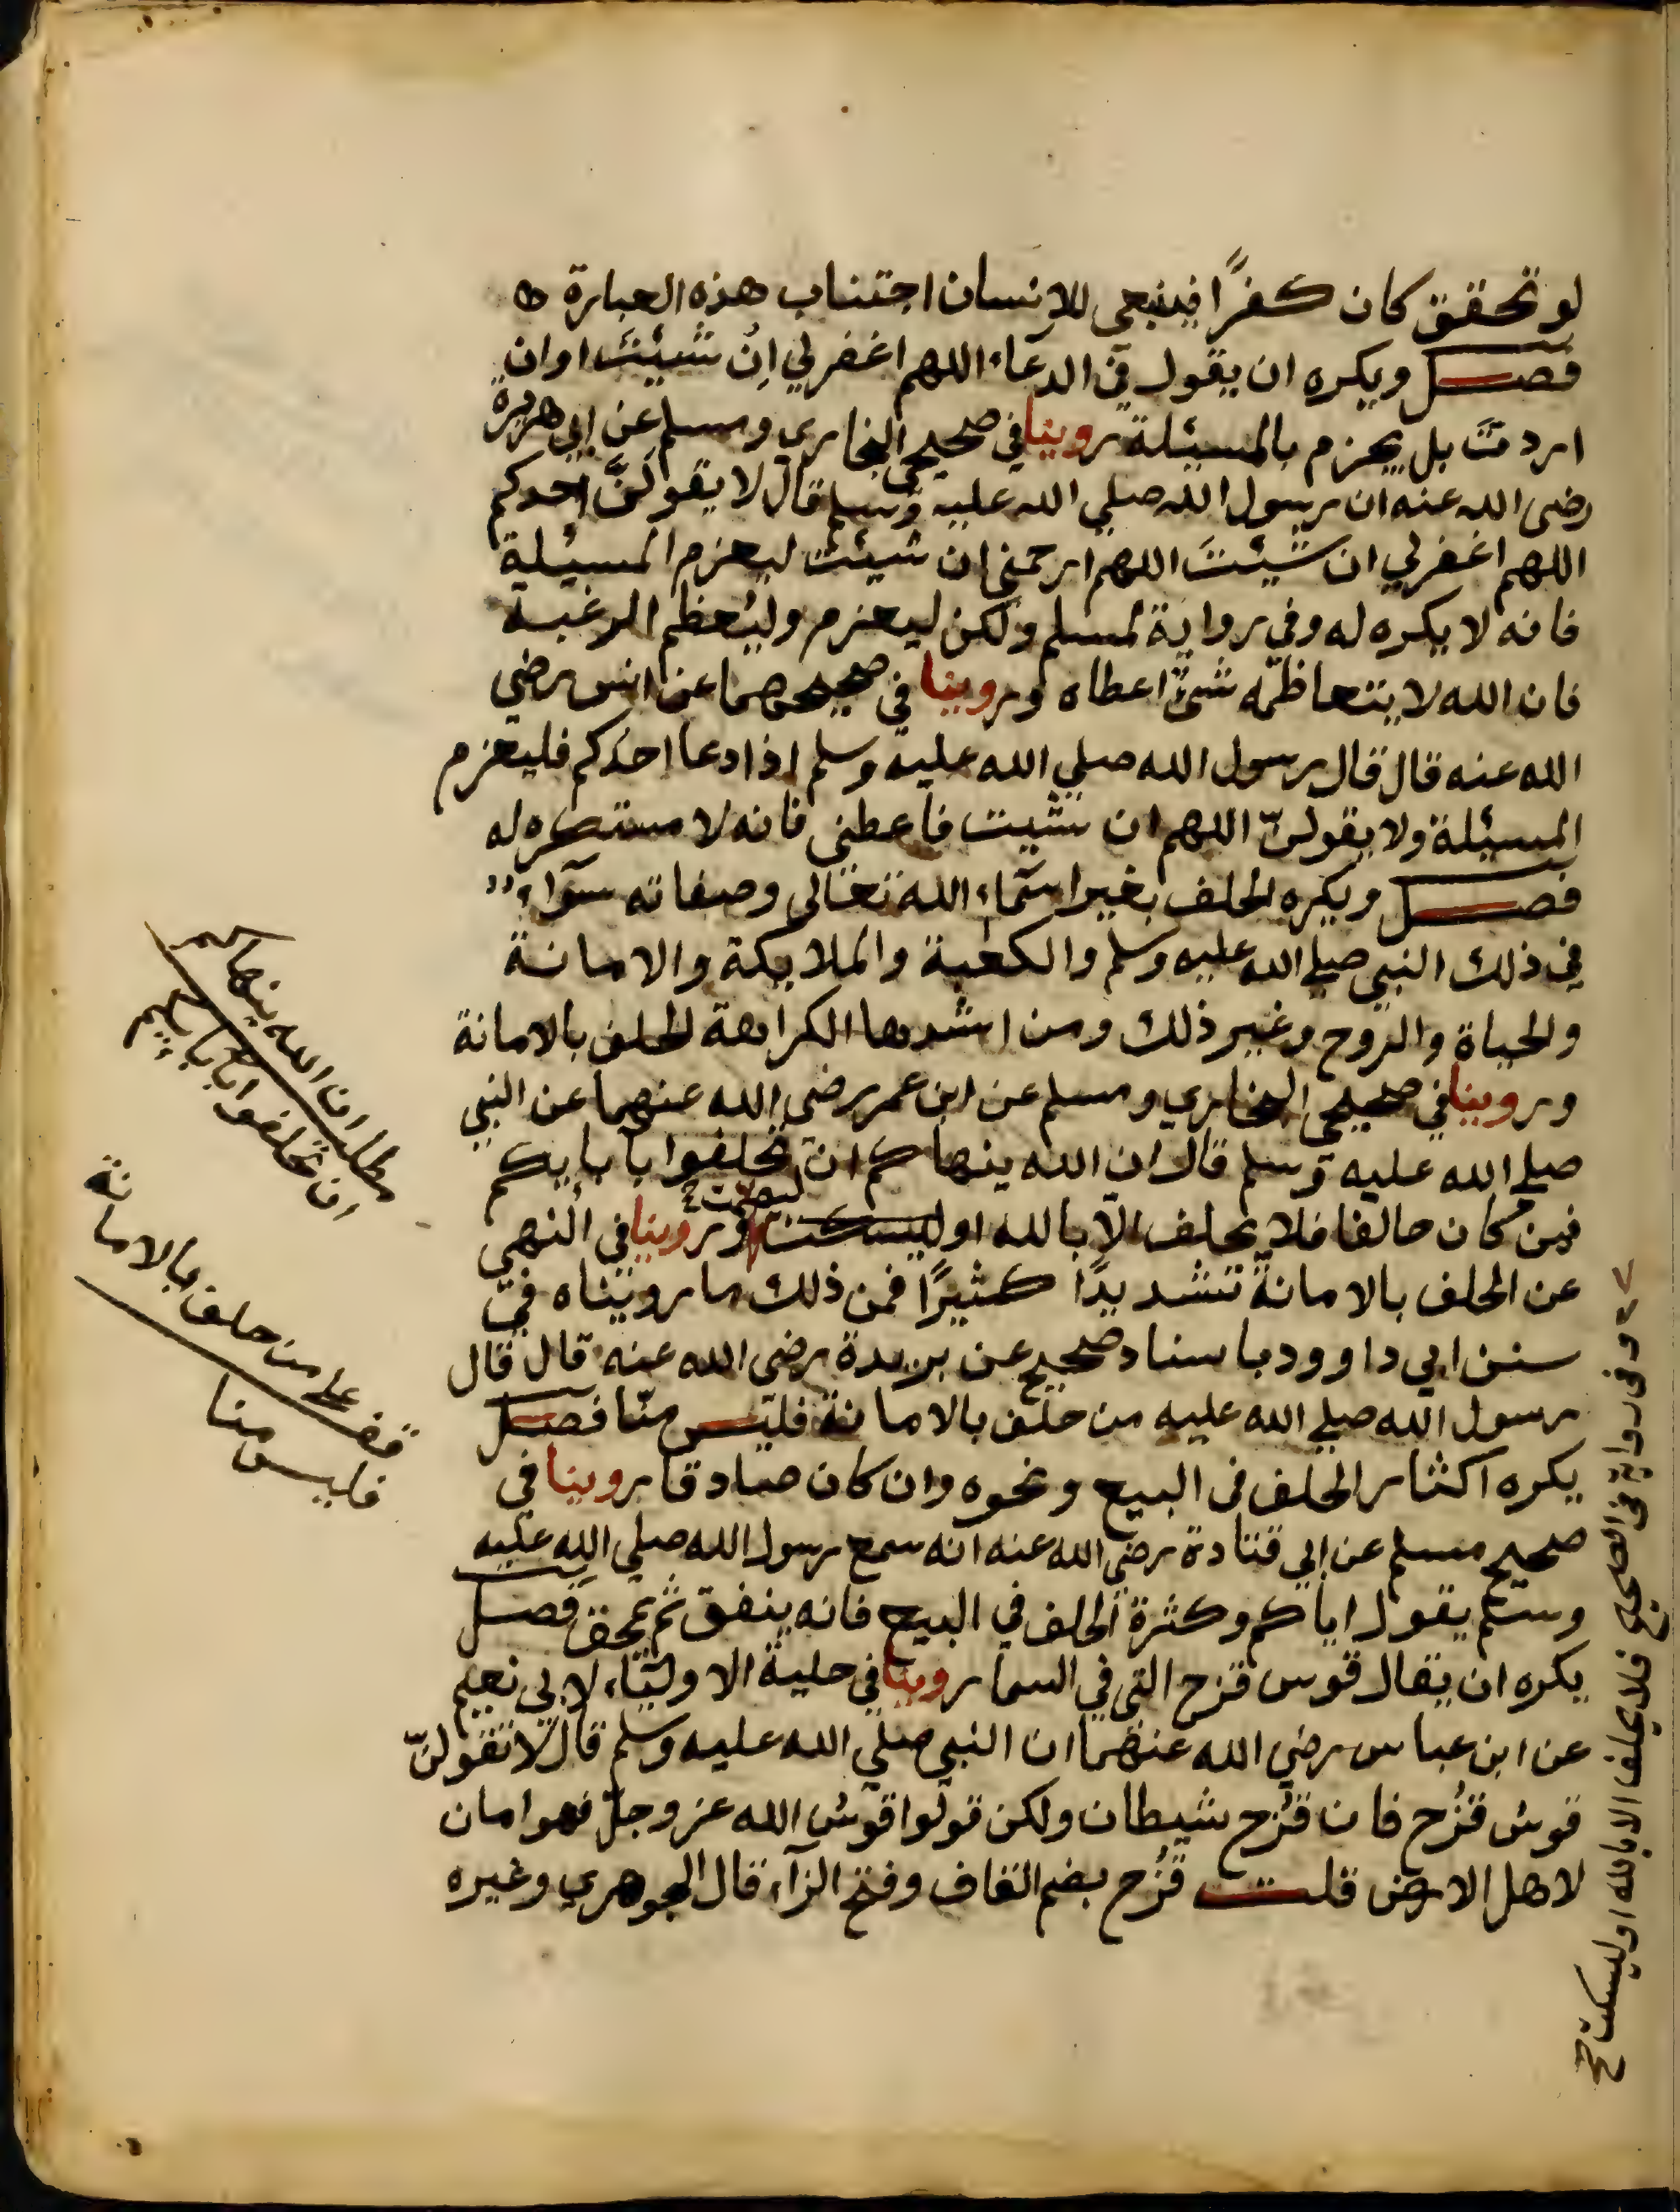 لو تحقق كان كفرًا فينبغي للانسان اجتناب هذه العبارة
فصل ويكره ان يقول في الدعاء اللهم اغفرلي اِن شيئت او ان
اردتَ بل يجزم بالمسيئلة روينا في صحيحي البخاري ومسلم عن ابي هريرة
رضي الله عنه ان رسول الله صلي الله عليه وسلم قال لا يقولَنَّ احدكم
اللهم اغفرلي ان شيئتَ اللهم ارحمني ان شيئت ليعزم المسيئلة
فانه لا يكره له وفي رواية لمسلم ولكن ليعزم وليُعظم الرغبة
فان الله لا يتعاظمه شئ اعطاه وروينا في صحيحهما عن انس رضي
الله عنه قال قال رسول الله صلي الله عليه وسلم اذا دعا احدكم فليعزم
المسيئلة ولا يقولنّ اللهم ان شيت فاعطني فانه لا مستكره له
فصل ويكره الحلف بغير اسماء الله تعالى وصفاته سوآء
في ذلك النبي صلي الله عليه وسلم والكعبة والملايكة والامانة
والحياة والروح وغير ذلك ومن اشدها الكراهة الحلف بالامانة
وروينا في صحيحي البخاري ومسلم عن ابن عمر رضي الله عنهما عن النبي
صلي الله عليه وسلم قال ان الله ينهاكم ان تحلفوا بآبايكم
فمن كان حالفا فلا يحلف الّا بالله او ليسكت ليصمت وروينا في النهي
عن الحلف بالامانة تشديدًا كثيرًا فمن ذلك ما رويناه في
سنن ابي داوود باسناد صحيح عن بريدة رضي الله عنه قال قال
رسول الله صلي الله عليه من حلف بالامانة فليس منّا فصل
يكره اكثار الحلف في البيع ونحوه وان كان صادقا روينا في
صحيح مسلم عن ابي قتادة رضي الله عنه انه سمع رسول الله صلي الله عليه
وسلم يقول اياكم وكثرة الحلف في البيع فانه ينفق ثم يمحق فصل
يكره ان يقال قوس قزح التي في السما روينا في حلية الاوليآء لابي نعيم
عن ابن عباس رضي الله عنهما ان النبي صلي الله عليه وسلم قال لا تقولنّ
قوس قزُح فان قزُح شيطان ولكن قولوا قوس الله عز وجل فهو امان
لاهل الارض قلت قزُح بضم القاف وفتح الزآء قال الجوهري وغيره
مطلب ان الله ينهاكم
ان تحلفوا ابابايكم
قف علي من حلف بالامانة
فليس منا
وفي رواية في الصحيح فلا يحلف الا بالله او ليسكت صح